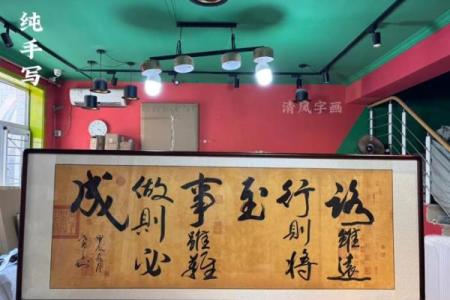 纯手写
清风字画
路雖遠
行則將
至
事雖難
做則必
成